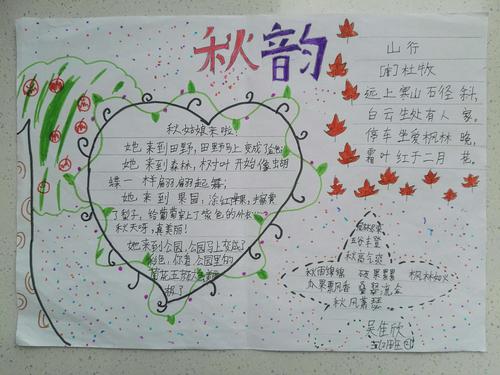 秋韵
秋姑娘来啦!
她来到田野,田野马上变成
她来到森林,树叶开始像蝴
蝶一样翩翩起舞;
她来到果园,涂红苹果,
了梨子,给葡萄穿上了紫色的
秋天呀,真美丽!
她来到公园,公园马上变成了
色,你看公园里的
菊花五颜六色
山行
[唐]杜牧
远上寒山石径斜,
白云生处有人家。
停车坐爱枫林晚,
霜叶红于二月花。
五谷丰登
秋高气爽
秋雨绵绵 硕果累累 枫林如火
瓜果飘香 叠翠流金
秋风萧瑟
吴佳欣